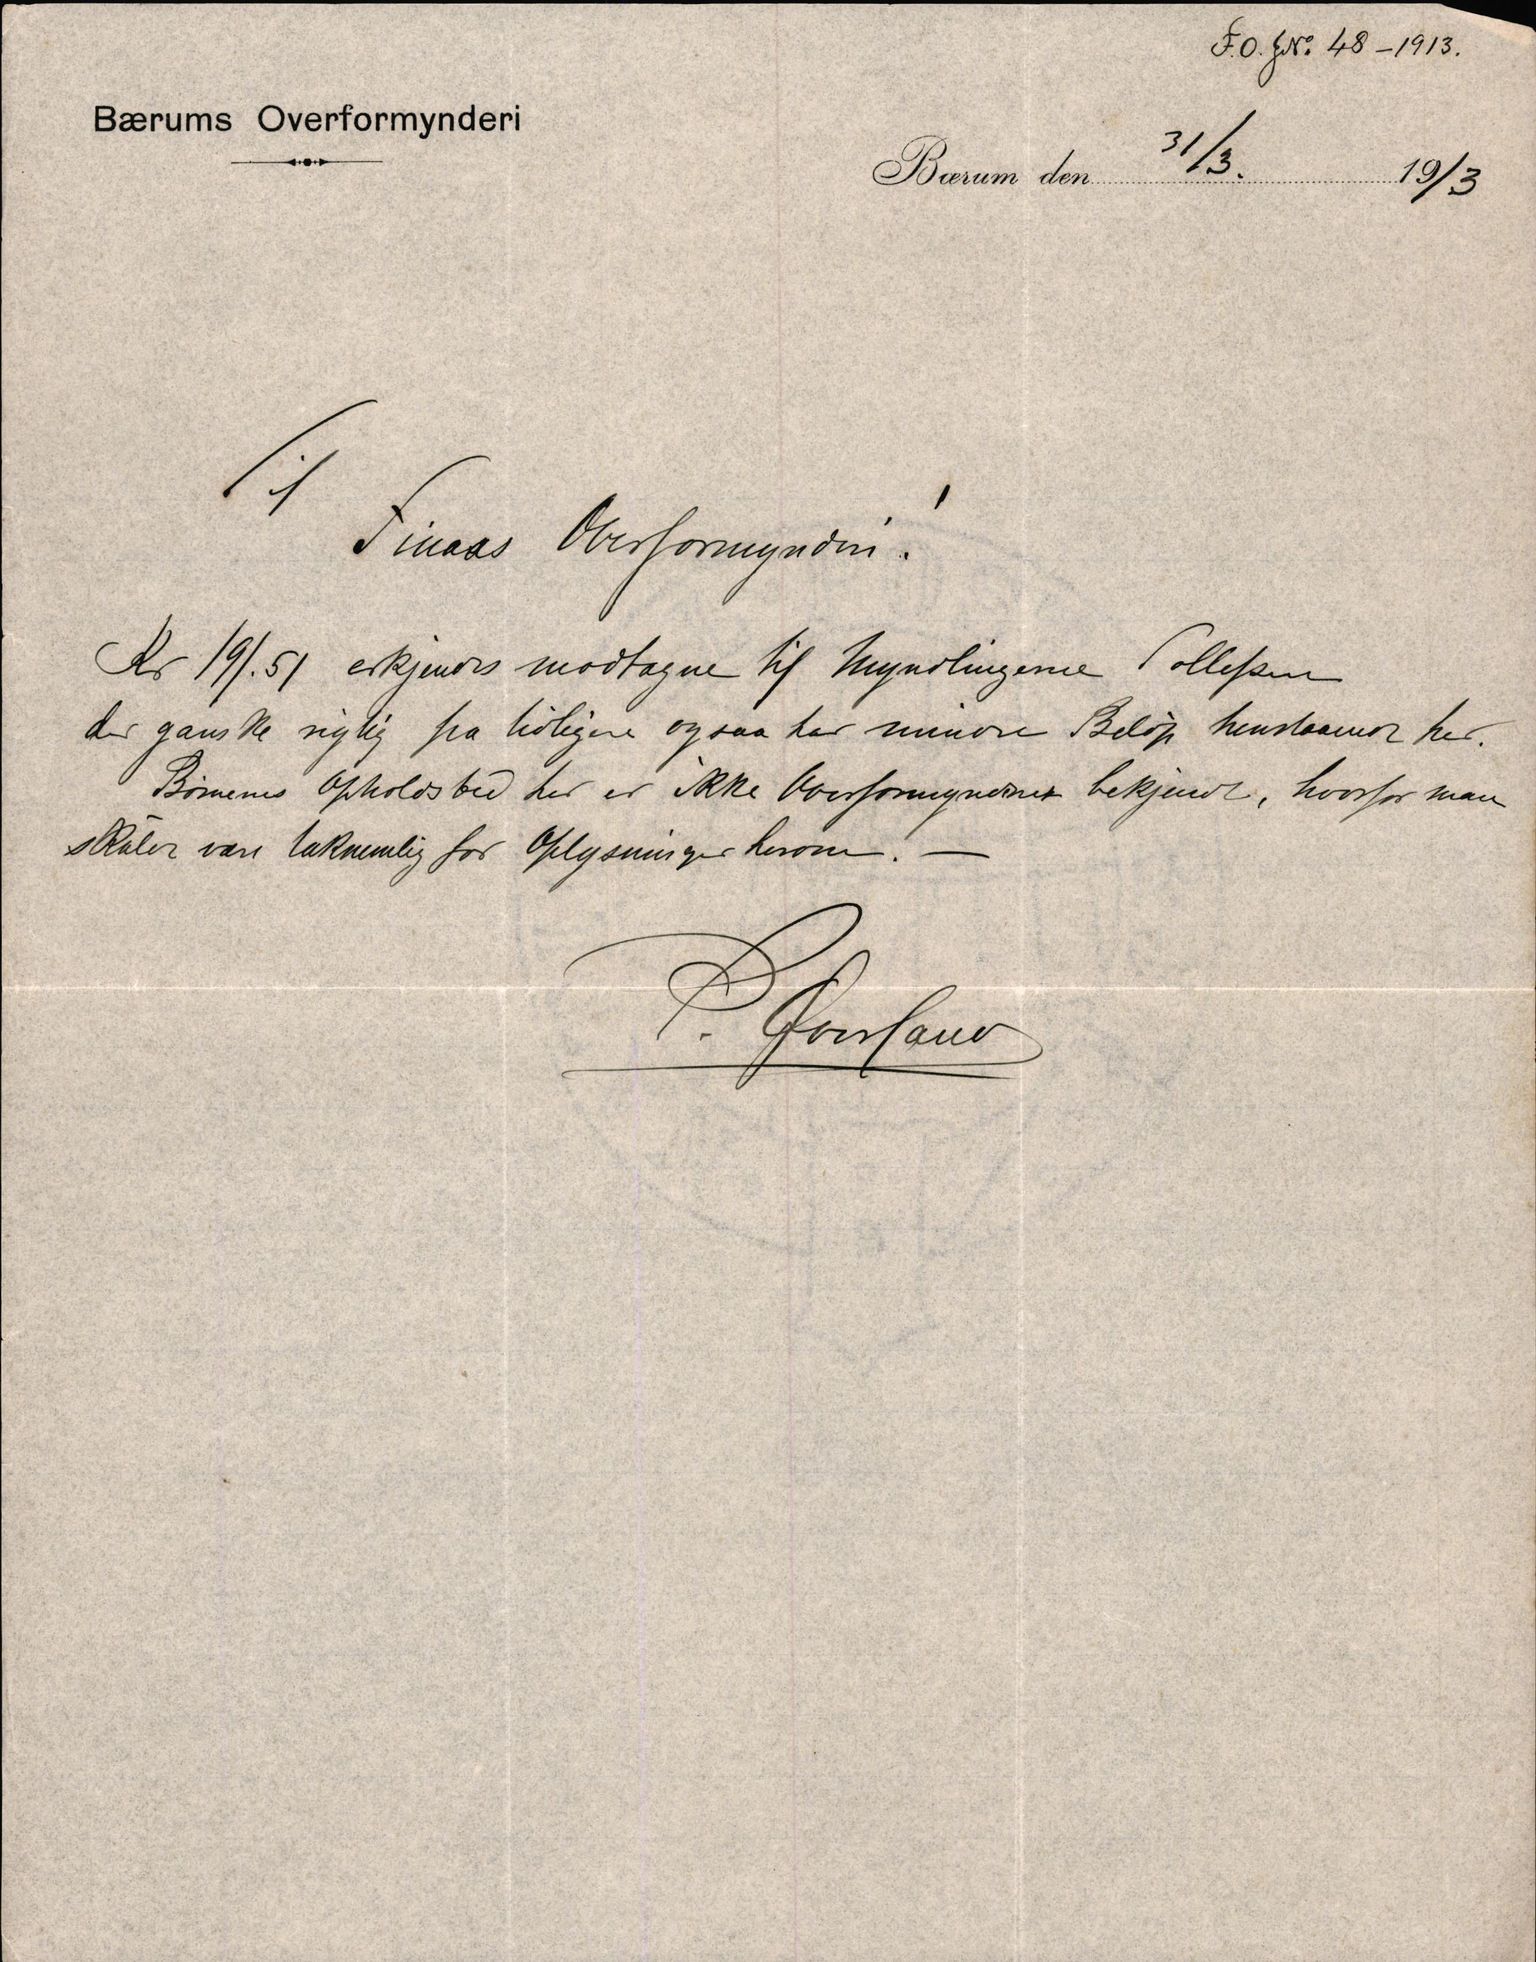 F.O. JNo. 48 - 1913.
Bærums Overformynderi
Bærum den 31/3. 1913
Til
Finaas Overformynderi!
Kr 191.51 erkjendes modtagne til Myndlingerne Tollefsen
der ganske rigtig fra tidligere ogsaa har mindre Beløp henstaaende her.
Børnenes Opholdsted her er ikke Overformynderiet bekjendt, hvorfor man
skulde være taknemlig for Oplysninger herom. —
P. Øverland